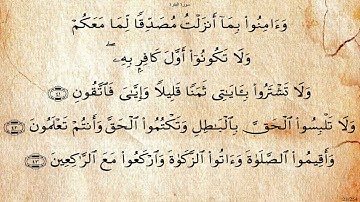 سورة البقرة
وَءَامِنُوا۟ بِمَآ أَنزَلْتُ مُصَدِّقًا لِّمَا مَعَكُمْ
وَلَا تَكُونُوٓا۟ أَوَّلَ كَافِرٍۭ بِهِۦ ۖ
وَلَا تَشْتَرُوا۟ بِـَٔايَـٰتِى ثَمَنًا قَلِيلًا وَإِيَّـٰىَ فَٱتَّقُونِ ﴿٤١﴾
وَلَا تَلْبِسُوا۟ ٱلْحَقَّ بِٱلْبَـٰطِلِ وَتَكْتُمُوا۟ ٱلْحَقَّ وَأَنتُمْ تَعْلَمُونَ ﴿٤٢﴾
وَأَقِيمُوا۟ ٱلصَّلَوٰةَ وَءَاتُوا۟ ٱلزَّكَوٰةَ وَٱرْكَعُوا۟ مَعَ ٱلرَّٰكِعِينَ ﴿٤٣﴾